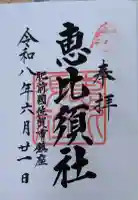 奉拝
恵比須社
肥前國佐賀市鎮座
令和八年六月廿一日